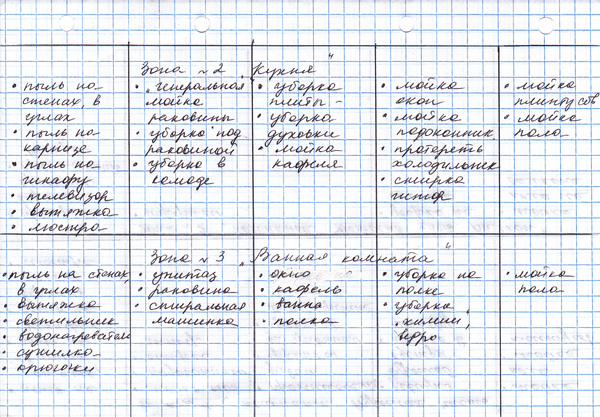 Зона №2 „Кухня“
• пыль на
стенах, в
углах
• пыль на
карнизе
• пыль на
шкафу
• телевизор
• вытяжка
• люстра
• „генеральная“
мойка
раковины
• уборка под
раковиной
• уборка в
комоде
• уборка
плиты -
• уборка
духовки
• мойка
кафеля
• мойка
окон
• мойка
подоконник
• протереть
холодильник
• стирка
штор
• мойка
плинтусов
• мойка
пола
Зона №3 „Ванная комната“
• пыль на стенах,
в углах
• вытяжка
• светильник
• водонагреватель
• сушилка
• крючки
• унитаз
• раковина
• стиральная
машинка
• окно
• кафель
• ванна
• полка
• уборка на
полке
• уборка
„химии“,
ведро
• мойка
пола